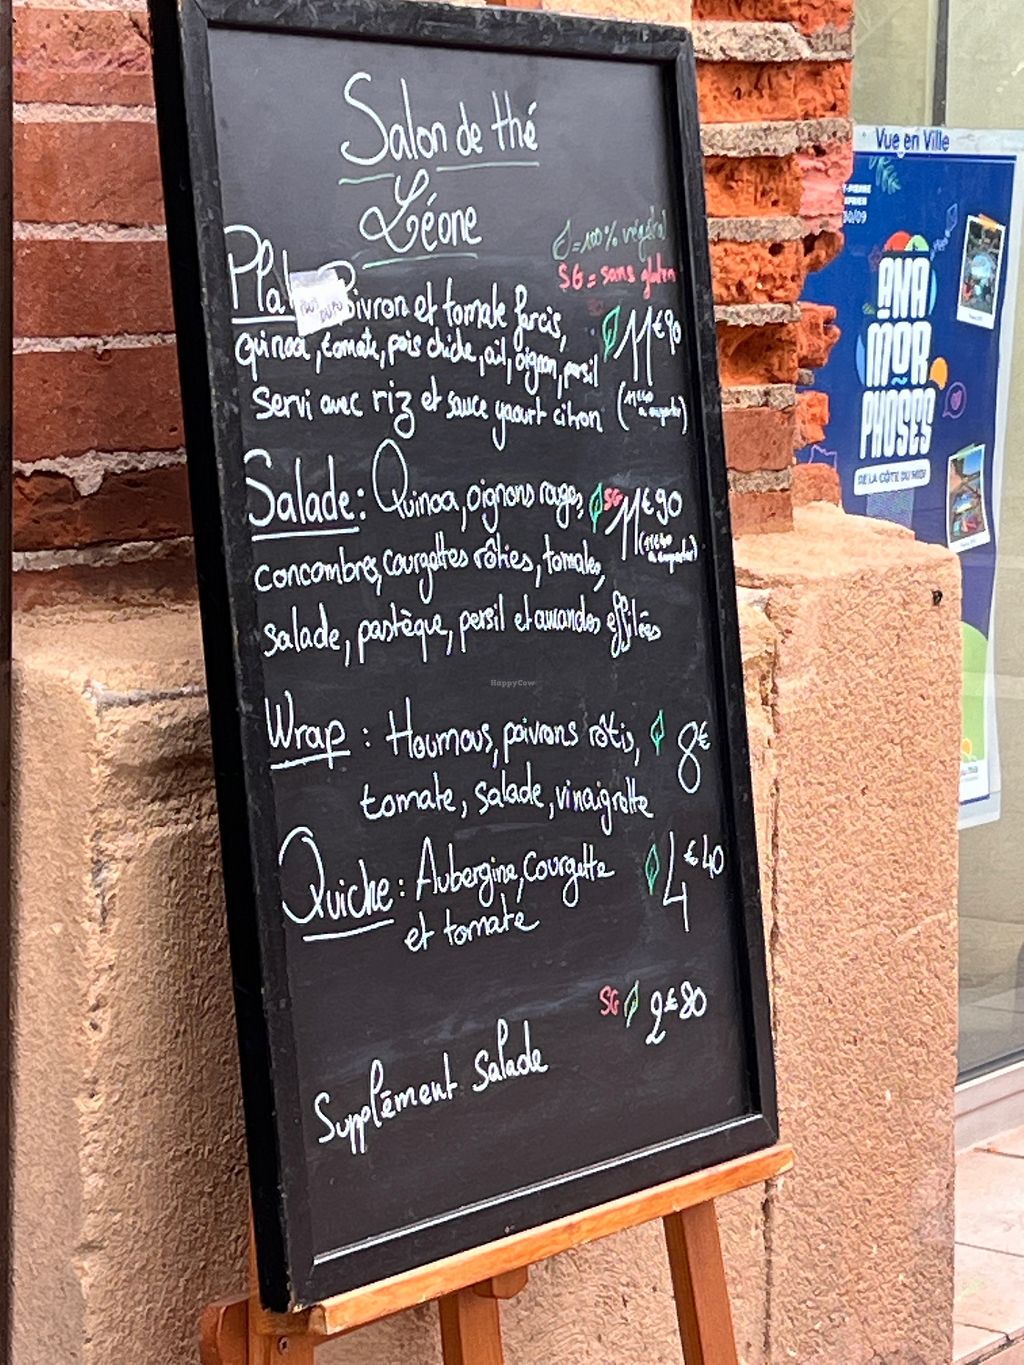 Salon de thé
Léone
= 100% végétal
SG = sans gluten
Plat Poivron et tomate farcis,
11€90
quinoa, tomate, pois chiche, ail, oignon, persil
Servi avec riz et sauce yaourt citron
(11€40
à emporter)
Salade : Quinoa, oignons rouges,
SG 11€90
(11€40
à emporter)
concombres, courgettes rôties, tomates,
salade, pastèque, persil et amandes effilées
HappyCow
Wrap : Houmous, poivrons rôtis,
8€
tomate, salade, vinaigrette
Quiche : Aubergine, Courgette
4€40
et tomate
SG 2€80
Supplément Salade
Vue en Ville
30/09
ANA
MOR
PHOSES
DE LA CÔTE DU MIDI